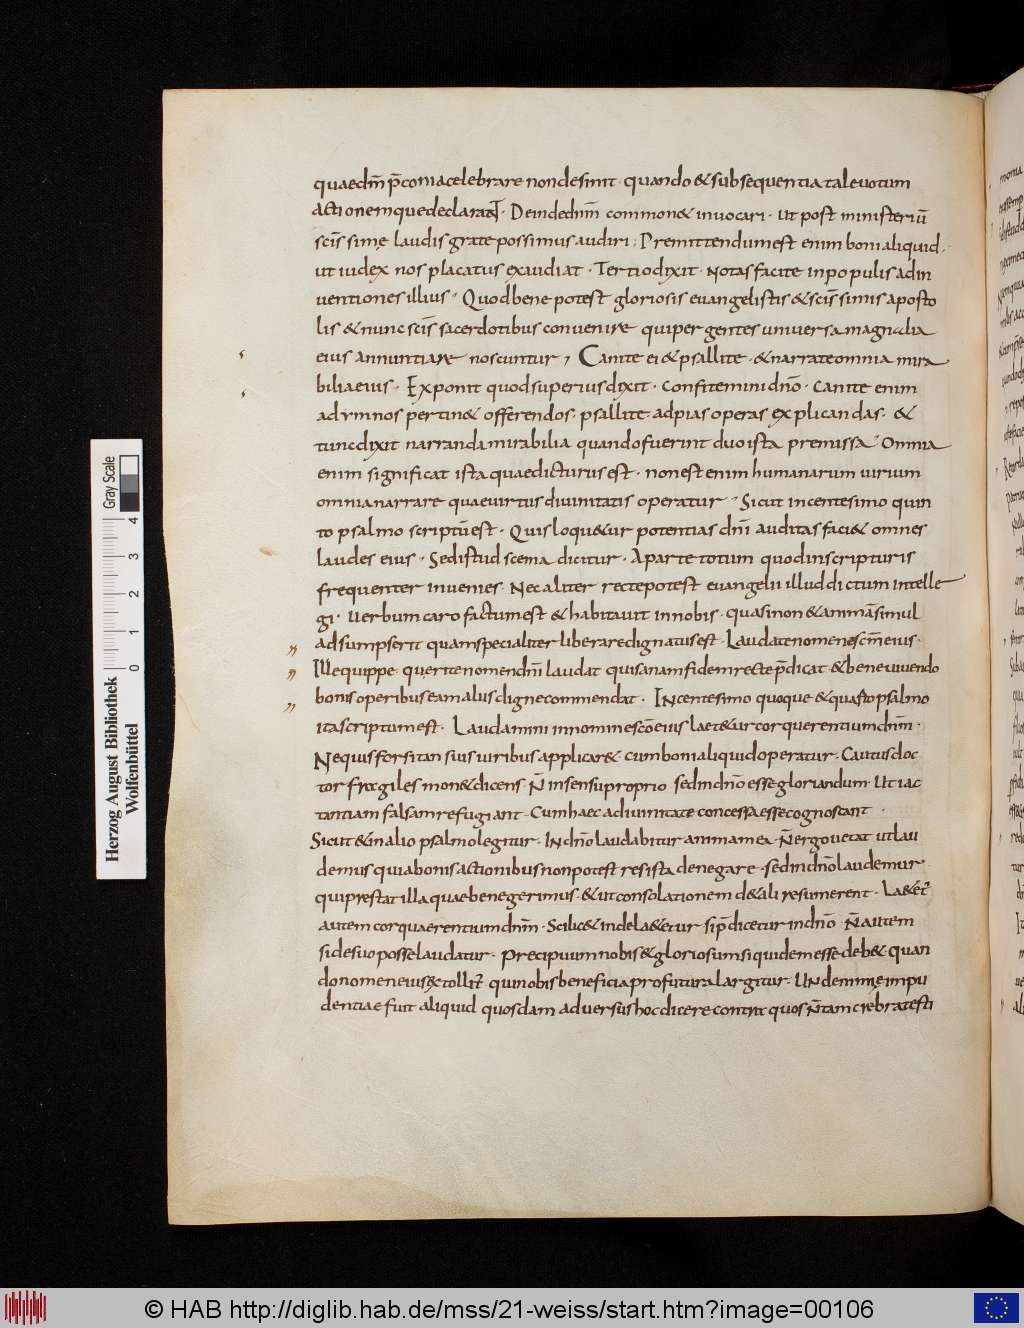 quae dn̄i p̄conia celebrare non desinit · quando & subsequentia tale uotum
actionemque declarant · Deinde dn̄m common& inuocari · Ut post ministeriū
sc̄issimę laudis grate possimus audiri ; Premittendum est enim boni aliquid ·
ut iudex nos placatus exaudiat · Tertio dixit · Notas facite in populis adin
uentiones illius · Quod bene potest gloriosis euangelistis & sc̄issimis aposto
lis & nunc sc̄is sacerdotibus conuenire qui per gentes uniuersa magnalia
eius annuntiare noscuntur , Canite ei & psallite · & narrate omnia mira
bilia eius · Exponit quod superius dixit · Confitemini dn̄o · Canite enim
ad ymnos pertin& offerendos · psallite ad pias operas explicandas · &
tunc dixit narranda mirabilia quando fuerint duo ista premissa · Omnia
enim significat ista quae dicturus est · non est enim humanarum uirum
omnia narrare quae uirtus diuinitatis operatur · Sicut in centesimo quin
to psalmo scriptū est · Quis loqu&ur potentias dn̄i auditas faci& omnes
laudes eius · Sed istud scema dicitur · A parte totum quod in scripturis
frequenter inuenies · Nec aliter recte potest euangelii illud dictum intelle
gi · Uerbum caro factum est & habitauit in nobis · quasi non & animā simul
adsumpserit quam specialiter liberare dignatus est · Laudate nomen sc̄m eius ·
Ille quippe querite nomen dn̄i laudat qui sanam fidem recte p̄dicat & bene uiuendo
bonis operibus eam aliis digne commendat · In centesimo quoque & quarto psalmo
ita scriptum est · Laudamini in nomine sc̄o eius laet&ur cor querentium dn̄m ·
Ne quis forsitan suis uiribus applicar& cum boni aliquid operatur · Cautus doc
tor fragiles mon& dicens · N̄ in sensu proprio sed in dn̄o esse gloriandum Ut iac
tantiam falsam refugiant · Cum haec a diuinitate concessa esse cognoscant ·
Sicut & in alio psalmo legitur · In dn̄o laudabitur anima mea · N̄ ergo uetat ut lau
demus quia bonis actionibus non potest res ista denegare · sed in dn̄o laudemur
qui prestat illa quae bene gerimus · & ut consolationem d& ali resumerent · La&et̄
autem cor quaerentium dn̄m · Scilic& inde la&etur si p̄dicetur in dn̄o N̄ autem
si de suo posse laudatur · Precipuum nobis & gloriosum siquidem esse deb& · quan
do nomen eius extollit̄ qui nobis beneficia profutura largitur · Unde nimię impu
dentiae fuit aliquid quosdam aduersus hoc dicere contra quos n̄ tam crebra testi
Herzog August Bibliothek
Wolfenbüttel
Gray Scale
0 1 2 3 4
© HAB http://diglib.hab.de/mss/21-weiss/start.htm?image=00106